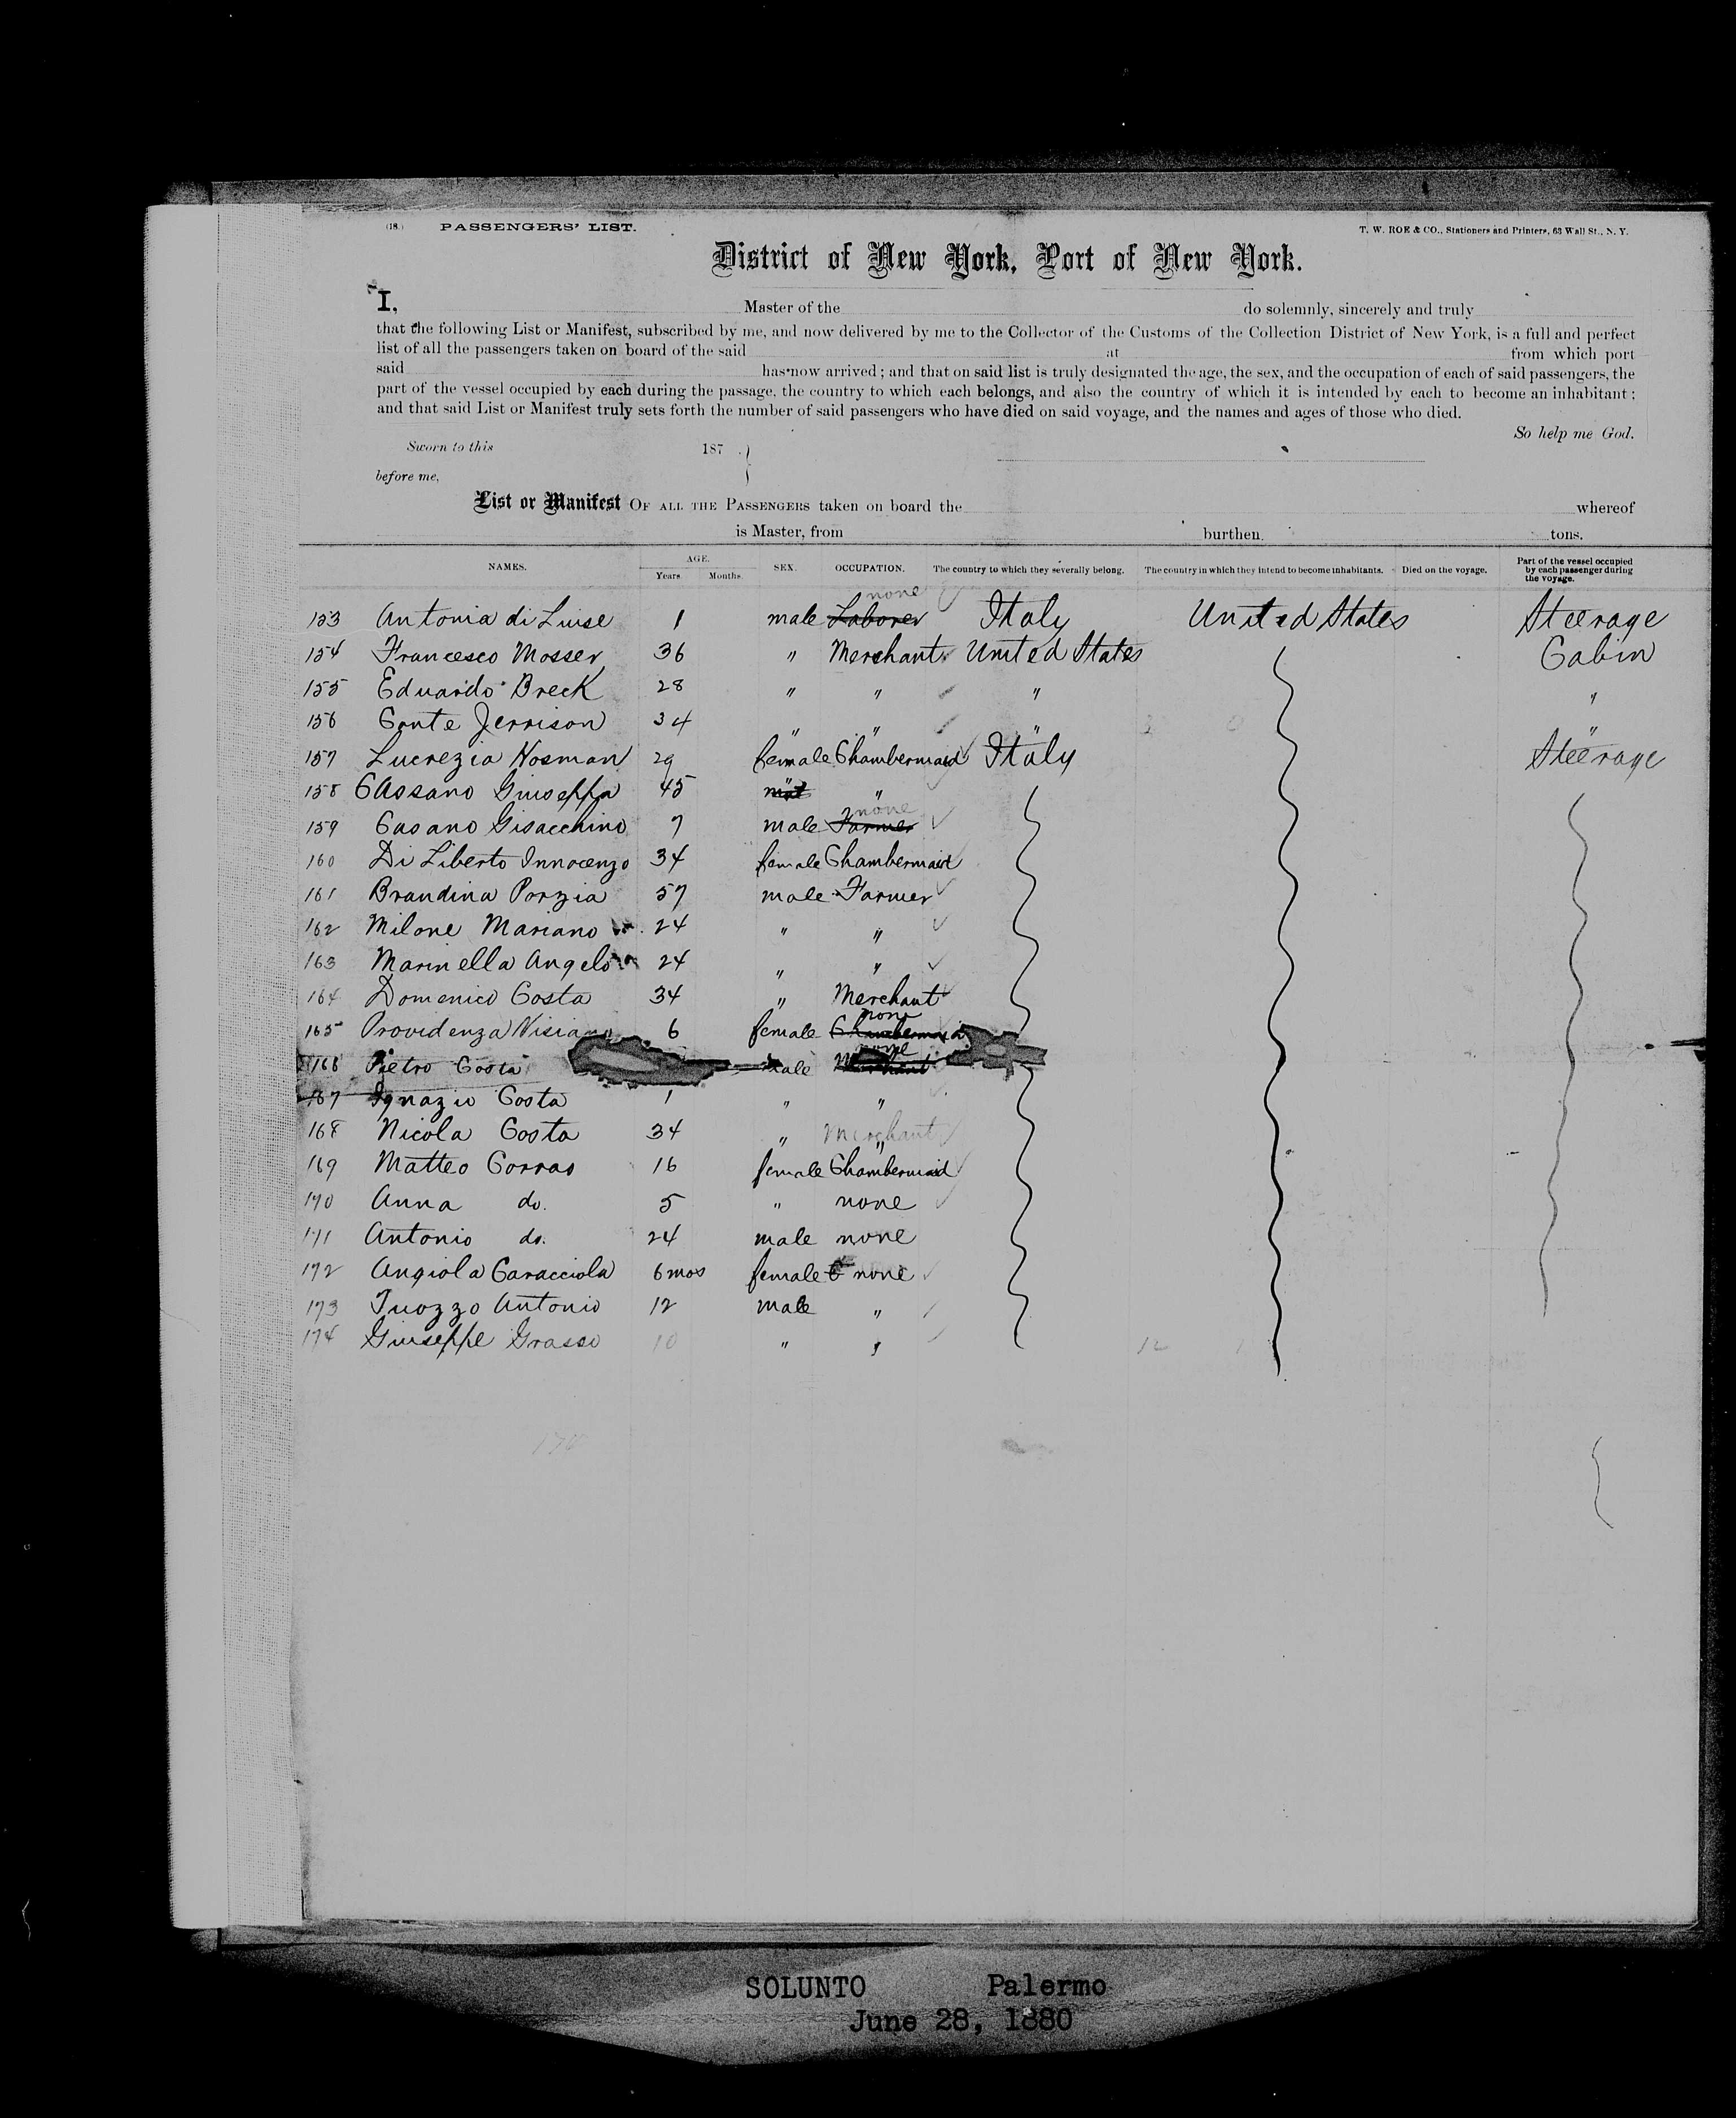 (18.) PASSENGERS' LIST.
T. W. ROE & CO., Stationers and Printers, 63 Wall St., N. Y.
District of New York, Port of New York.
I, Master of the do solemnly, sincerely and truly
that the following List or Manifest, subscribed by me, and now delivered by me to the Collector of the Customs of the Collection District of New York, is a full and perfect
list of all the passengers taken on board of the said at from which port
said has now arrived; and that on said list is truly designated the age, the sex, and the occupation of each of said passengers, the
part of the vessel occupied by each during the passage, the country to which each belongs, and also the country of which it is intended by each to become an inhabitant;
and that said List or Manifest truly sets forth the number of said passengers who have died on said voyage, and the names and ages of those who died.
So help me God.
Sworn to this 187 .}
before me,
List or Manifest OF ALL THE PASSENGERS taken on board the whereof
is Master, from burthen. tons.
NAMES. AGE. Years. Months. SEX. OCCUPATION. The country to which they severally belong. The country in which they intend to become inhabitants. Died on the voyage. Part of the vessel occupied by each passenger during the voyage.
153 Antonia di Luise 1 male Laborer none Italy United States Steerage
154 Francesco Mosser 36 " Merchant United States Cabin
155 Eduardo Breck 28 " " " "
156 Conte Jerrison 34 " " " "
157 Lucrezia Nosman 29 female Chambermaid Italy Steerage
158 Cassano Giuseppa 45 "
159 Casano Gisacchino 7 male Farmer none
160 Di Liberto Innocenzo 34 female Chambermaid
161 Brandina Porzia 57 male Farmer
162 Milone Mariano 24 " "
163 Marinella Angelo 24 " "
164 Domenico Costa 34 " Merchant
165 Providenza Visiano 6 female Chambermaid none
166 Pietro Costa male Merchant none
167 Ignazio Costa 1 " "
168 Nicola Costa 34 " Merchant "
169 Matteo Corrao 16 female Chambermaid
170 Anna do. 5 " none
171 Antonio do. 24 male none
172 Angiola Caracciola 6 mos female none
173 Tuozzo Antonio 12 male "
174 Giuseppe Grasso 10 " "
12
SOLUNTO Palermo
June 28, 1880